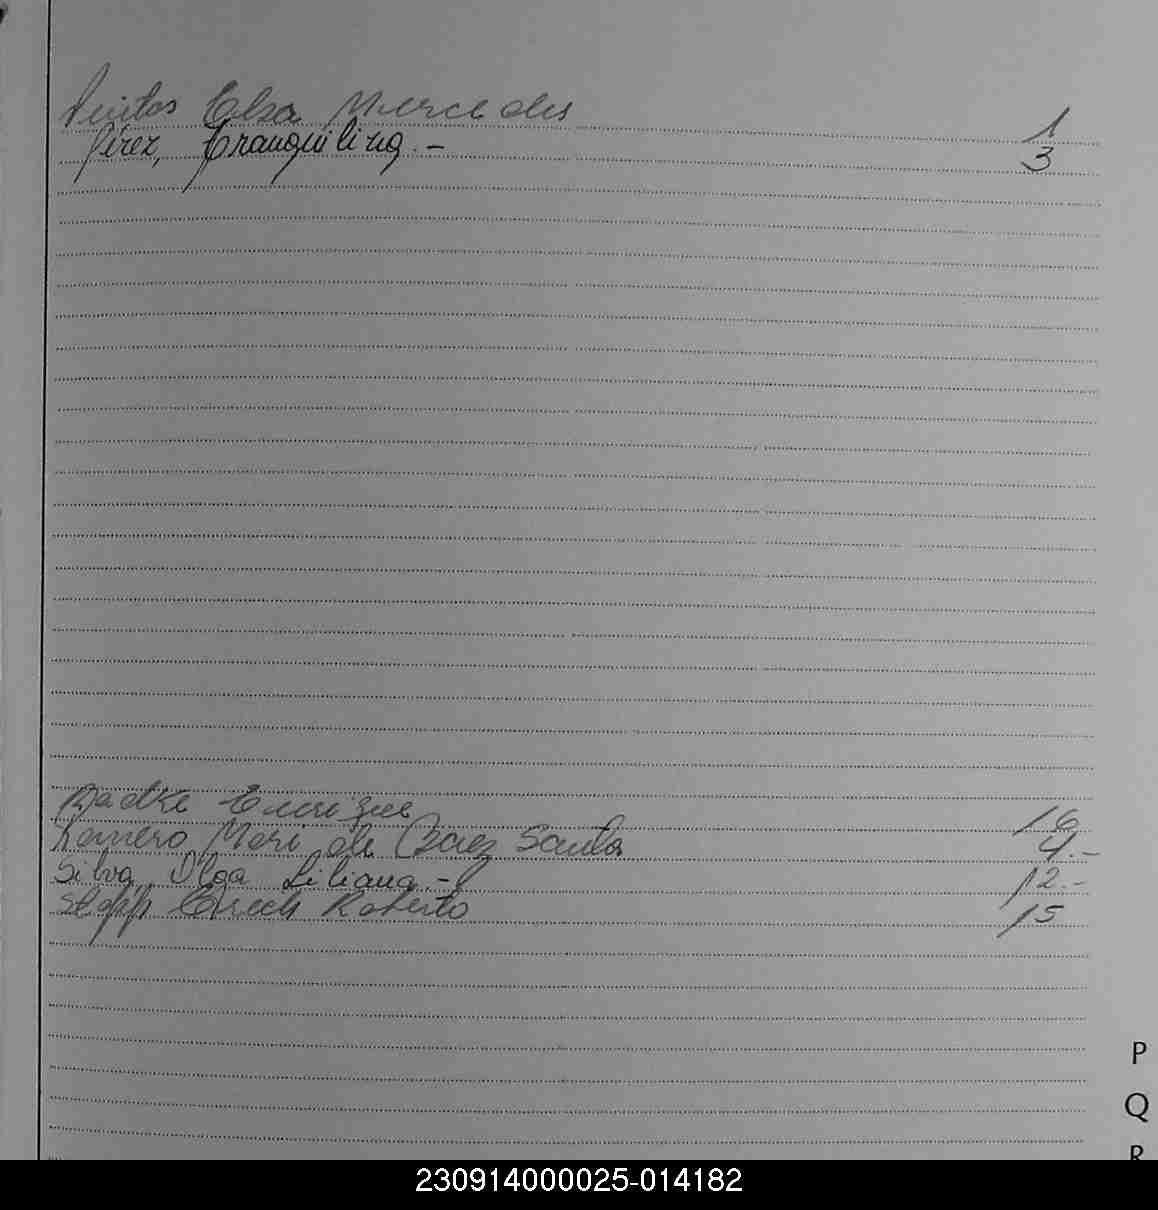 Elsa Mercedes 1
Pérez, Tranquilina.- 3
16
Romero Mari de Baez Santa 4.-
Silva Olga Liliana.- 12.-
Stopp Erech Roberto 15
P
Q
R
230914000025-014182